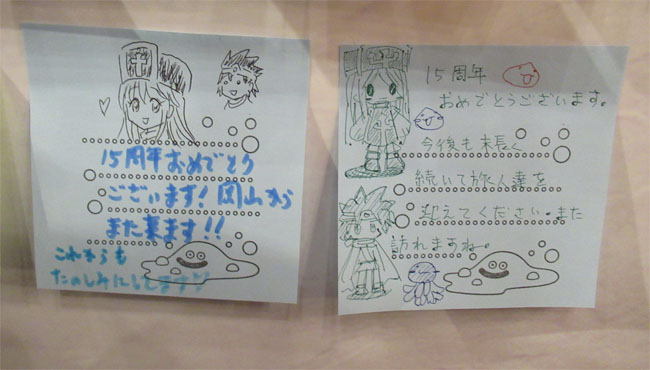 15周年おめでとう
ございます！岡山から
また来ます!!
これからも
たのしみにしてます!!
15周年
おめでとうございます。
今後も末長く
続いて旅人達を
迎えてください。また
訪れますね。